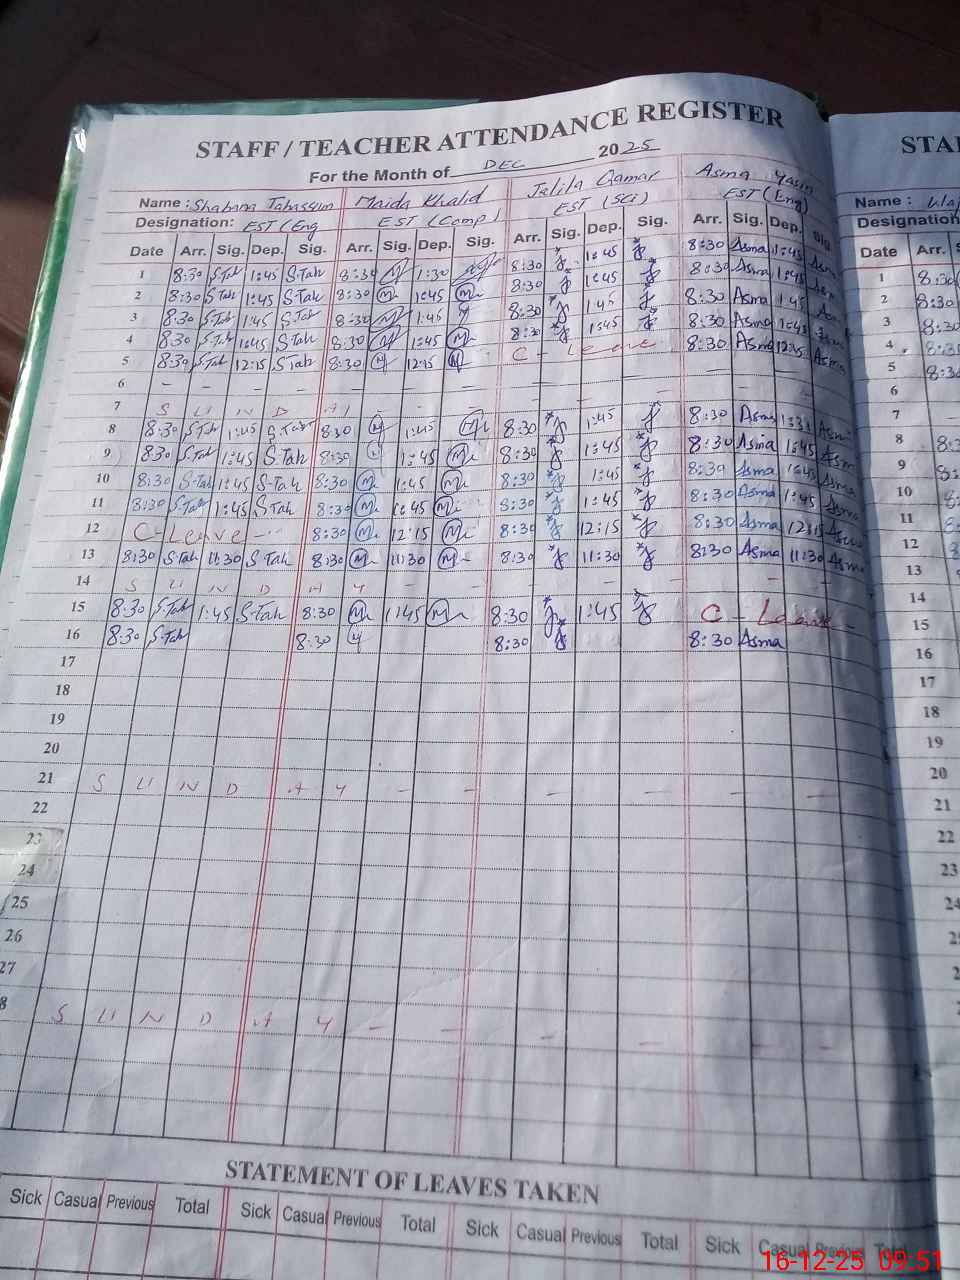 STAFF / TEACHER ATTENDANCE REGISTER
For the Month of DEC 2025
Name : Shabana Tabassum Maida Khalid Jalila Qamar Asma Yasin
Designation: EST (Eng EST (Comp) EST (SCi) EST (Eng)
Date Arr. Sig. Dep. Sig. Arr. Sig. Dep. Sig. Arr. Sig. Dep. Sig. Arr. Sig. Dep. Sig.
1 8:30 S-Tah 1:45 S-Tah 8:30 1:30 8:30 1:45 8:30 Asma 1:45 Asm
2 8:30 S-Tah 1:45 S-Tah 8:30 M 1:45 M 8:30 1:45 8:30 Asma 1:45 Asm
3 8:30 S-Tah 1:45 S-Tah 8:30 1:45 8:30 1:45 8:30 Asma 1:45
4 8:30 S-Tah 1:45 S-Tah 8:30 1:45 M 8:30 1:45 8:30 Asma 1:45
5 8:30 S-Tah 12:15 S-Tah 8:30 12:15 C - Leave 8:30 Asma 12:15 Asma
6 - - - -
7 S U N D A Y
8 8:30 S-Tah 1:45 S-Tah 8:30 1:45 8:30 1:45 8:30 Asma Asm
9 8:30 S-Tah 1:45 S-Tah 8:30 1:45 M 8:30 1:45 8:30 Asma 1:45 Asm
10 8:30 S-Tah 1:45 S-Tah 8:30 M 1:45 M 8:30 1:45 8:30 Asma 1:45 Asma
11 8:30 S-Tah 1:45 S-Tah 8:30 M 1:45 M 8:30 1:45 8:30 Asma 1:45 Asma
12 C-Leave - 8:30 M 12:15 M 8:30 12:15 8:30 Asma 12:15 Asma
13 8:30 S-Tah 11:30 S-Tah 8:30 M 11:30 M 8:30 11:30 8:30 Asma 11:30 Asma
14 S U N D A Y
15 8:30 S-Tah 1:45 S-Tah 8:30 M 1:45 M 8:30 1:45 C - Leave -
16 8:30 S-Tah 8:30 8:30 8:30 Asma
17
18
19
20
21 S U N D A Y - - - - - -
22
23
24
25
26
27
8 S U N D A Y - - - - - -
STATEMENT OF LEAVES TAKEN
Sick Casual Previous Total Sick Casual Previous Total Sick Casual Previous Total Sick Casual Previous Total
STA
Name :
Designation
Date Arr. S
1 8:30
2 8:30
3 8:30
4 8:30
5 8:30
6
7
8
9
10
11
12
13
14
15
16
17
18
19
20
21
22
23
24
16-12-25 09:51